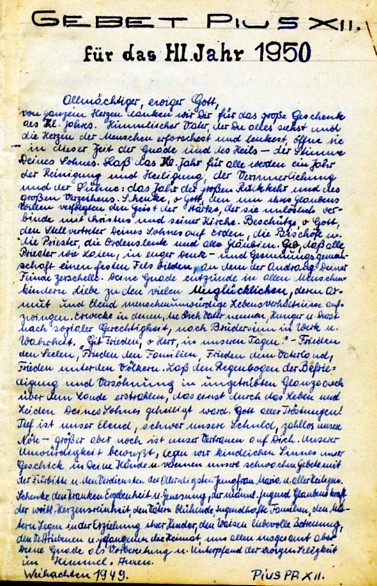 GEBET PIUS XII.
für das Hl. Jahr 1950
Allmächtiger, ewiger Gott,
von ganzem Herzen danken wir Dir für das große Geschenk
des Hl. Jahrs. Himmlischer Vater, der Du alles siehst und
die Herzen der Menschen erforschest und lenkest. Öffne sie
in dieser Zeit der Gnade und des Heils – der Stimme
Deines Sohnes. Laß das Hl. Jahr für alle werden ein Jahr
der Reinigung und Heiligung, der Verinnerlichung
und der Sühne: das Jahr der großen Rückkehr und des
großen Verzeihens. Schenke, o Gott, den um ihres Glaubens
willen verfolgten den Geist der Stärke, der sie unlösbar ver-
binde mit Christus und seiner Kirche. Beschütze o Gott,
den Stellvertreter Deines Sohnes auf Erden, die Bischöfe u.
die Priester, die Ordensleute und alle Gläubien. Gib, daß alle
Priester wie Laien, in enger Denk- und Gesinnungsgemein-
schaft einen festen Fels bilden, an dem der Andrang Deiner
Feinde zerschelle. Deine Gnade entzünde in allen Menschen-
kindern Liebe zu den vielen Unglücklichen, denen Ar-
mut und Elend menschenunwürdige Lebensverhältnisse auf-
zwingen. Erwecke in denen, die Dich Vater nennen, Hunger u. Durst
nach sozialer Gerechtigkeit, nach Brudersinn in Werk u.
Wahrheit. "Gib Frieden, o Herr, in unseren Tagen." – Frieden
den Seelen, Frieden den Familien, Frieden dem Vaterland,
Frieden unter den Völkern. Laß den Regenbogen der Befrie-
digung und Versöhnung in ungetrübten Glanze auch
über dem Lande erstrahlen, das einst durch das Leben und
Leiden Deines Sohnes geheiligt ward. Gott aller Tröstungen!
Tief ist unser Elend, schwer unsere Schuld, zahllos unsere
Nöte – größer aber noch ist unser Vertrauen auf Dich. Unserer
Unwürdigkeit bewußt, legen wir kindlichen Sinnes unser
Geschick in Deine Hände u. vereinen unsere schwachen Gebete mit
der Fürbitte u. den Verdiensten der Allerseligsten Jungfrau Maria u. aller Heiligen.
Schenke den Kranken Ergebenheit u. Genesung, der männl. Jugend Glaubenskraft
der weibl. Herzensreinheit, den Vätern blühende Jugendhafte Familien, den Müt-
tern Segen in der Erziehung ihrer Kinder, den Waisen liebevolle Betreuung,
den Vertriebenen u. Gefangenen die Heimat, uns allen insgesamt aber
Deine Gnade als Vorbereitung u. Unterpfand der ewigen Seligkeit
im Himmel. Amen.
Weihnachten 1949. PIUS PP. XII.